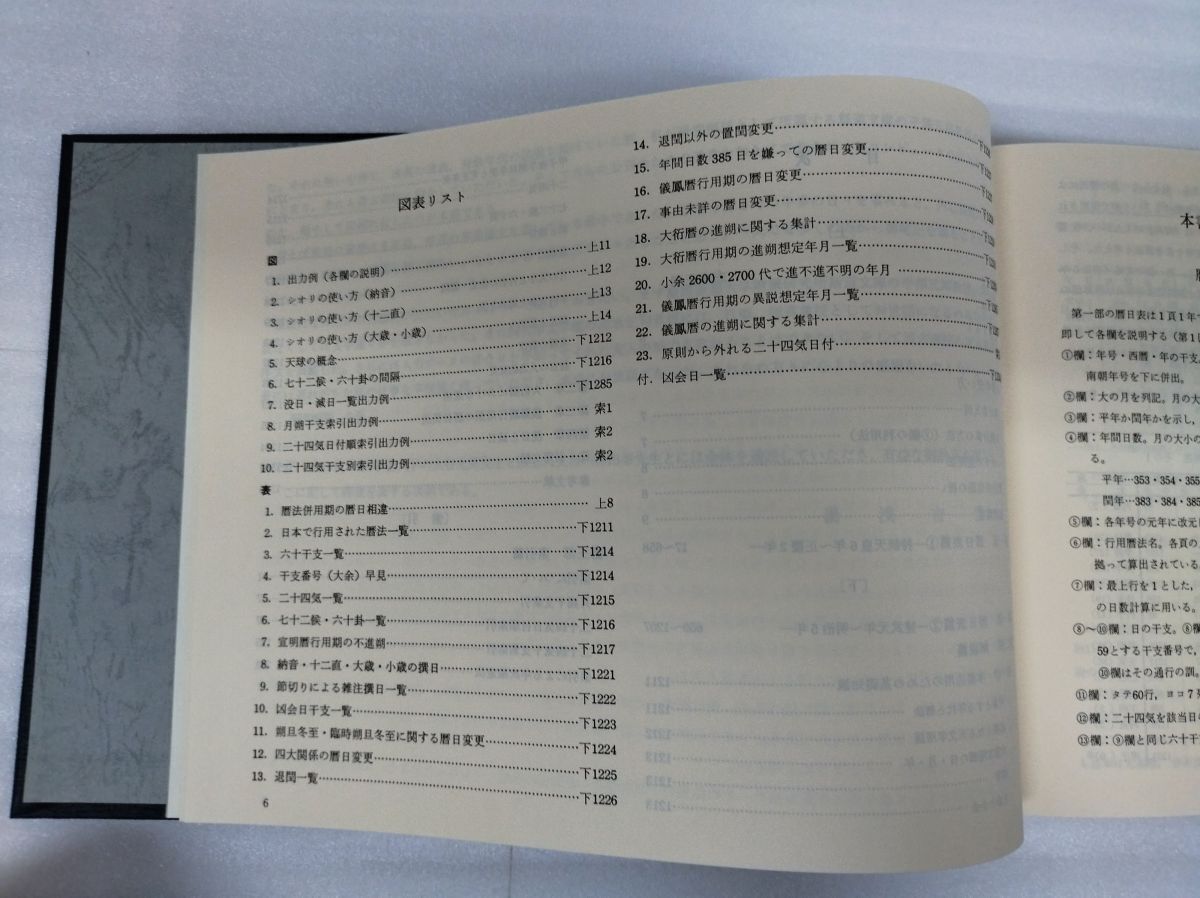 図表リスト
図
1. 出力例（各欄の説明）……上11
2. シオリの使い方（納音）……上12
3. シオリの使い方（十二直）……上13
4. シオリの使い方（大歳・小歳）……上14
5. 天球の概念……下1212
6. 七十二候・六十卦の間隔……下1216
7. 没日・滅日一覧出力例……下1285
8. 月朔干支索引出力例……索1
9. 二十四気日付順索引出力例……索2
10. 二十四気干支別索引出力例……索2
表
1. 暦法併用期の暦日相違……上8
2. 日本で行用された暦法一覧……下1211
3. 六十干支一覧……下1214
4. 干支番号（大余）早見……下1214
5. 二十四気一覧……下1215
6. 七十二候・六十卦一覧……下1216
7. 宣明暦行用期の不進朔……下1217
8. 納音・十二直・大歳・小歳の撰日……下1221
9. 節切りによる雑注撰日一覧……下1222
10. 凶会日干支一覧……下1223
11. 朔旦冬至・臨時朔旦冬至に関する暦日変更……下1224
12. 四大関係の暦日変更……下1225
13. 退閏一覧……下1226
6
14. 退閏以外の置閏変更……
15. 年間日数385日を嫌っての暦日変更……
16. 儀鳳暦行用期の暦日変更……
17. 事由未詳の暦日変更……
18. 大衍暦の進朔に関する集計……
19. 大衍暦行用期の進朔想定年月一覧……
20. 小余2600・2700代で進不進不明の年月……
21. 儀鳳暦行用期の異説想定年月一覧……
22. 儀鳳暦の進朔に関する集計……
23. 原則から外れる二十四気日付……
付. 凶会日一覧……
本
第一部の暦日表は1頁1年
即して各欄を説明する（第1
①欄：年号・西暦・年の干支
南朝年号を下に併出。
②欄：大の月を列記。月の大
③欄：平年か閏年かを示し，
④欄：年間日数。月の大小の
る。
平年…353・354・355
閏年…383・384・385
⑤欄：各年号の元年に改元
⑥欄：行用暦法名。各頁の
拠って算出されている
⑦欄：最上行を1とした，
の日数計算に用いる。
⑧～⑩欄：日の干支。⑧欄
59とする干支番号で，
⑩欄はその通行の訓。
⑪欄：タテ60行，ヨコ7
⑫欄：二十四気を該当日
⑬欄：⑨欄と同じ六十干